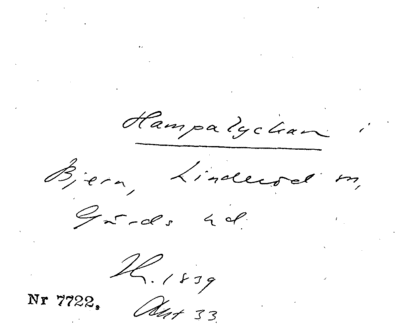 Hampalyckan i
Bjern, Linderöd sn,
Gärds hd.
1839
Nr 7722. Akt 33